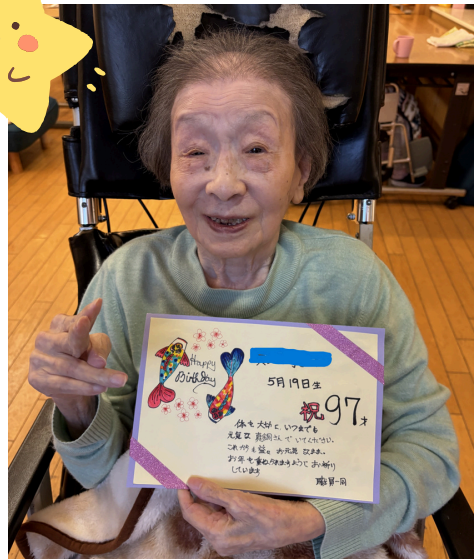 Happy
BirthDay
5月19日生
祝97才
体を大切に、いつまでも
元気な
さんでいてください。
これからも益々お元気で
お年を重ねられますようにお祈り
しています
職員一同